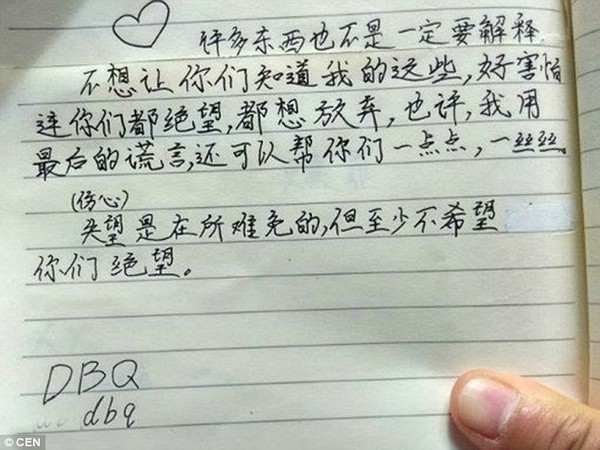 许多东西也不是一定要解释
不想让你们知道我的这些,好害怕
连你们都绝望,都想放弃,也许,我用
最后的谎言,还可以帮你们一点点,一丝丝。
(伤心)
失望是在所难免的,但至少不希望
你们绝望。
DBQ
dbq
© CEN